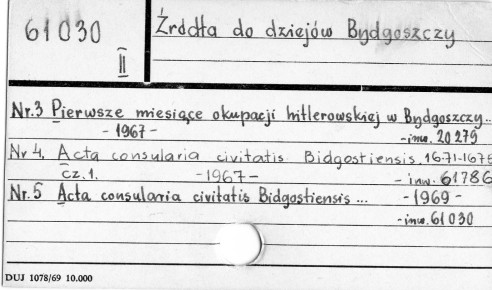 61030
II
Źródła do dziejów Bydgoszczy
Nr.3 Pierwsze miesiące okupacji hitlerowskiej w Bydgoszczy..
- 1967 -
- inw. 20279
Nr 4. Acta consularia civitatis Bidgostiensis. 1671-1675
cz. 1. - 1967 - - inw. 61786
Nr. 5 Acta consularia civitatis Bidgostiensis ... - 1969 -
- inw. 61030
DUJ 1078/69 10.000